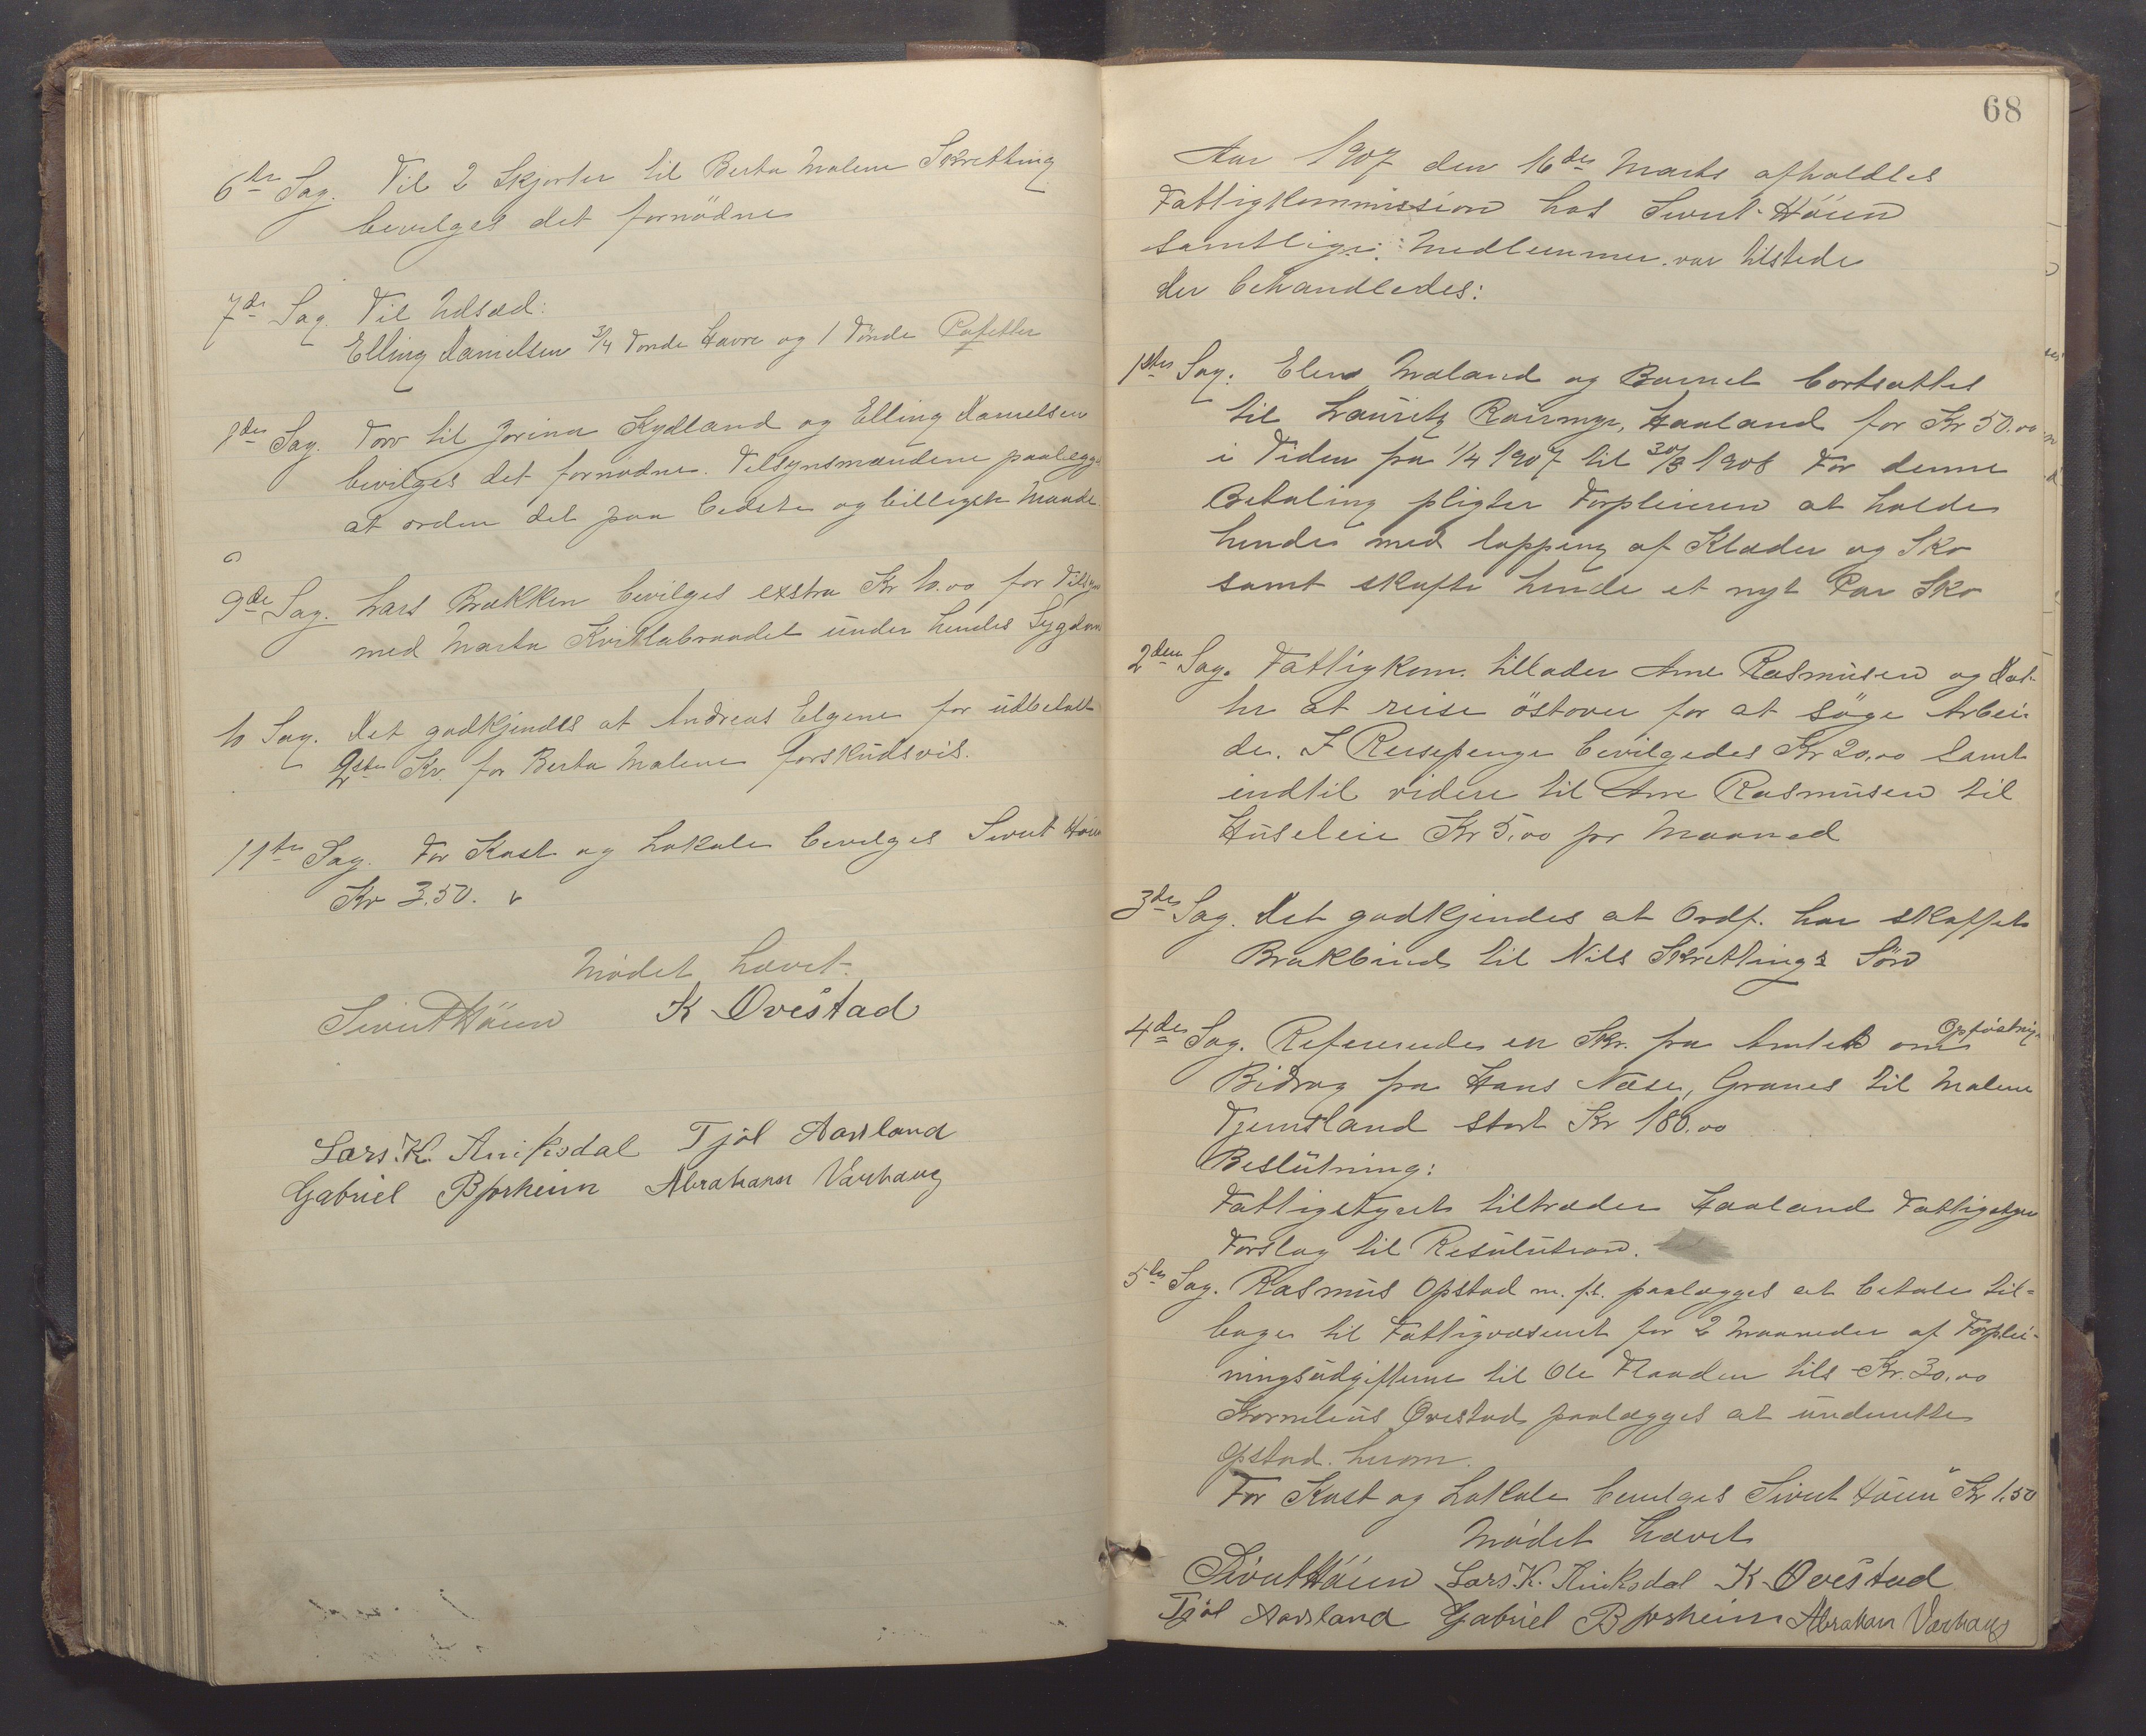 6te Sag. Til 2 Skjorter til Berta Malene Skretting
bevilges det fornødne
7de Sag. Til Udsæd:
Elling Danielsen 3/4 Tønde Havre og 1 Tønde Poteter
8de Sag. Torv til Jorina Kydland og Elling Danielsen
bevilges det fornødne. Tilsynsmændene paalægges
at ordne det paa bedste og billigste Maade
9de Sag. Lars Brækken bevilges exstra Kr 10.00 for Tilsyn
med Marta Kvitlabraadet under hendes Sygdom
10 Sag. Det godkjendes at Andreas Elgene for udbetalt
2det Kv. for Berta Malene forskudsvis.
11te Sag. For Kost og Lokale bevilges Sivert Høien
Kr 3.50.
Mødet hævet.
Sivert Høien K Ovestad
Lars. K. Aniksdal Tjøl Aarsland
Gabriel Bjorheim Abraham Varhaug
68
Aar 1907 den 16de Marts afholdtes
Fattigkommission hos Sivert Høien
samtlige Medlemmer var tilstede
der behandledes:
1ste Sag. Elen Mæland og Barnet bortsattes
til Lauritz Rosmyr, Haaland for Kr 50.00
i Tiden fra 1/4 1907 til 30/3 1908 For denne
Betaling pligter Forpleieren at holde
hende med lapping af Klæder og Sko
samt skaffe hende et nyt Par Sko
2den Sag. Fattigkom. tillader Arne Rasmusen og Dat-
ter at reise østover for at søge Arbei-
de. I Reisepenge bevilgedes Kr 20,00 samt
indtil videre til Arne Rasmusen til
Husleie Kr 5,00 pr Maaned
3de Sag. Det godkjendes at Ordf. har skaffet
Brokbind til Nils Skrettings Søn
4de Sag. Refereredes en Skr. fra Amtet om Opfostrings
Bidrag fra Hans Næse, Granes til Malene
Tjemsland stort Kr 180.00
Beslutning:
Fattigstyret tiltræder Haaland Fattigstyre
Forslag til Resulution.
5te Sag. Rasmus Opstad m. fl. paalægges at betale til-
bage til Fattigvæsenet for 2 Maaneder af Forplei-
ningsudgifterne til Ole Flaaden tils Kr. 30,00
Kornelius Ovestad paalægges at underrette
Opstad herom.
For Kost og Lokale bevilges Sivert Høien Kr 1.50
Mødet hævet
Sivert Høien Lars K. Aniksdal K Ovestad
Tjøl Aarsland Gabriel Bjorheim Abraham Varhaug